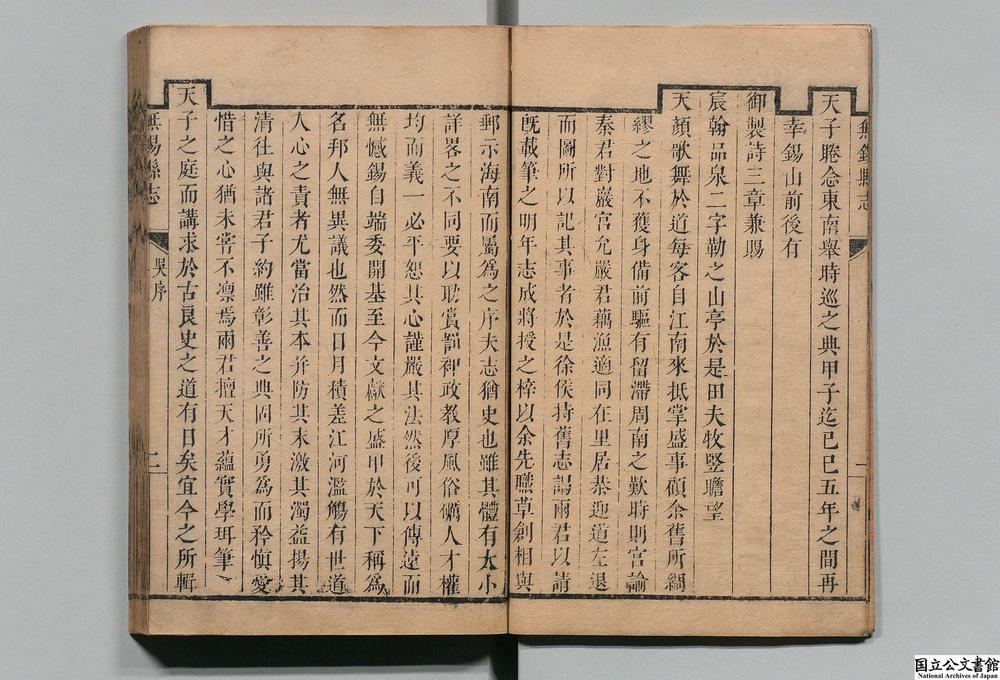 無錫縣志
一
天子睠念東南舉時巡之典甲子迄己巳五年之間再
幸錫山前後有
御製詩三章兼賜
宸翰品泉二字勒之山亭於是田夫牧豎瞻望
天顏歌舞於道每客自江南來抵掌盛事顧余舊所綢
繆之地不獲身備前驅有留滯周南之歎時則宮諭
秦君對巖宮允嚴君藕漁適同在里居恭迎道左退
而圖所以記其事者於是徐侯持舊志謁兩君以請
旣載筆之明年志成將授之梓以余先職草創相與
郵示海南而屬爲之序夫志猶史也雖其體有大小
詳畧之不同要以助賞罰裨政教厚風俗礪人才權
均而義一必平恕其心謹嚴其法然後可以傳遠而
無憾錫自端委開基至今文獻之盛甲於天下稱爲
名邦人無異議也然而日月積差江河濫觴有世道
人心之責者尤當治其本并防其末激其濁益揚其
清往與諸君子約雖彰善之典固所勇爲而矜愼愛
惜之心猶未嘗不凛焉兩君擅天才蘊實學珥筆
天子之庭而講求於古良史之道有日矣宜今之所輯
無錫縣志
吳序
二
国立公文書館
National Archives of Japan